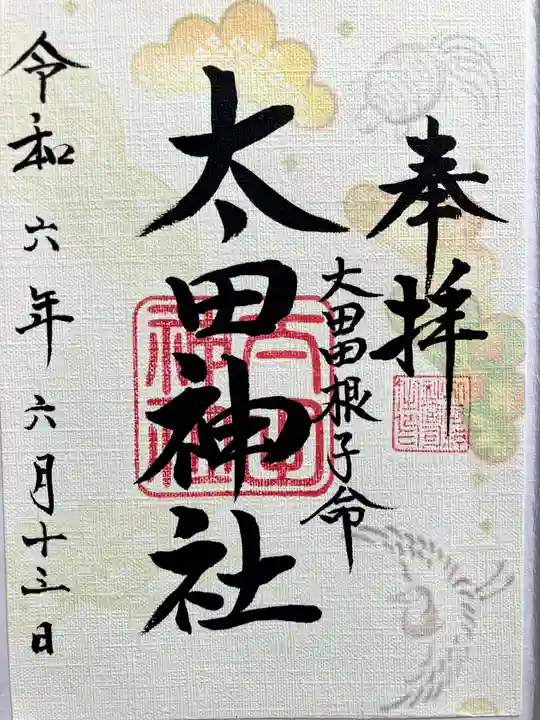 奉拝
大田田根子命
太田神社
令和六年六月十三日